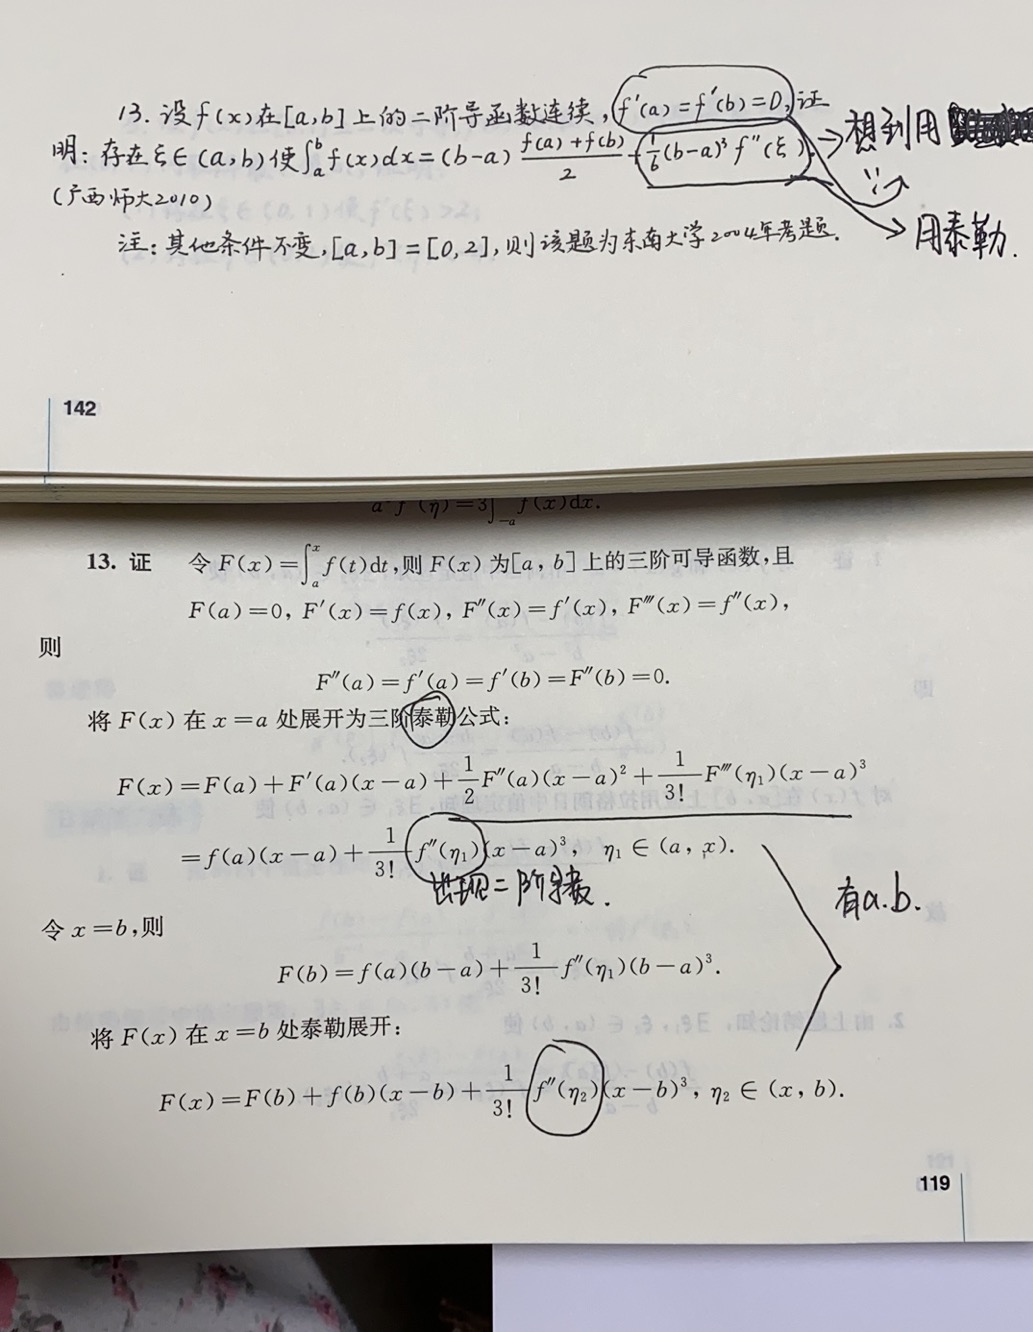 13. 设f(x)在[a,b]上的二阶导函数连续, f′(a)=f′(b)=0, 证
明: 存在ξ∈(a,b)使∫ₐᵇ f(x)dx=(b-a) (f(a)+f(b))/2 + 1/6 (b-a)³ f″(ξ).
想到用
(广西师大2010)
用泰勒.
注: 其他条件不变, [a,b]=[0,2], 则该题为东南大学2004年考题.
142
=3∫₋ₐ f(x)dx.
13. 证 令 F(x)=∫ₐˣ f(t)dt,则 F(x) 为[a, b]上的三阶可导函数,且
F(a)=0, F′(x)=f(x), F″(x)=f′(x), F‴(x)=f″(x),
则
F″(a)=f′(a)=f′(b)=F″(b)=0.
将 F(x) 在 x=a 处展开为三阶泰勒公式:
F(x)=F(a)+F′(a)(x-a)+1/2 F″(a)(x-a)²+1/3! F‴(η₁)(x-a)³
=f(a)(x-a)+1/3! f″(η₁)(x-a)³, η₁∈(a, x).
出现二阶导数.
有a.b.
令 x=b,则
F(b)=f(a)(b-a)+1/3! f″(η₁)(b-a)³.
将 F(x) 在 x=b 处泰勒展开:
F(x)=F(b)+f(b)(x-b)+1/3! f″(η₂)(x-b)³, η₂∈(x, b).
119